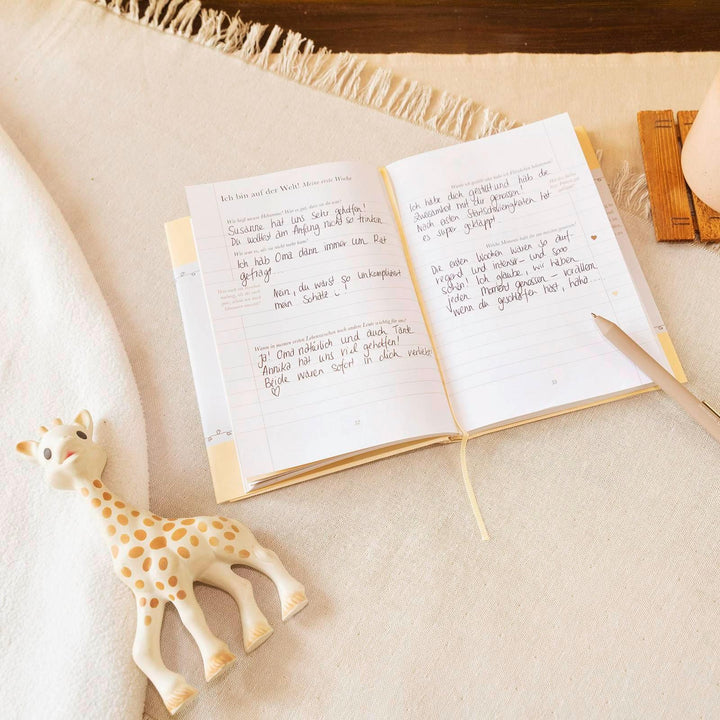 Ich bin auf der Welt! Meine erste Woche
Wie lief unsere Hebamme? Was es gut, dass sie da war?
Susanne hat uns sehr geholfen!
Du wolltest am Anfang nicht so trinken.
Wie war es, als sie nicht mehr kam?
Ich hab Oma dann immer um Rat
gefragt.
Nein, du warst so unkompliziert
mein Schatz
Waren in meinen ersten Lebenswochen noch andere Leute wichtig für uns?
Ja! Oma natürlich und auch Tante
Annika hat uns viel geholfen!
Beide waren sofort in dich verliebt
♡
12
Ich habe dich gestillt und hab die
Zweisamkeit mit dir genossen!
Nach ersten Startschwierigkeiten hat
es super geklappt!
Welche Momente hast du am meisten genossen?
Die ersten Wochen waren so auf-
regend und intensiv - und sooo
schön! Ich glaube, wir haben
jeden Moment genossen - vorallem
wenn du geschlafen hast, haha...
13